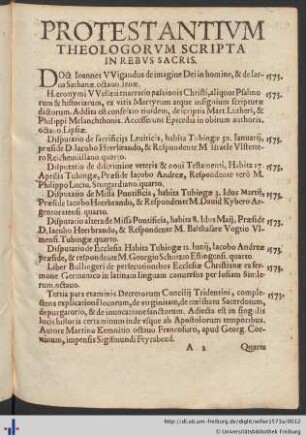 PROTESTANTIVM
THEOLOGORVM SCRIPTA
IN REBVS SACRIS.
DOct Ioannes VVigandus de imagine Dei in homine, & de lar-
ua Sathanæ. octauo. Ienæ. 1573.
Hieronymi VVelleri enarratio passionis Christi, aliquot Psalmo
rum & historiarum, ex viris Martyrum atque insignium scripturæ
dictorum. Addita est confessio eiusdem, de scriptis Mart. Lutheri, &
Philippi Melanchthonis. Accesserunt Epicedia in obitum authoris.
octauo. Lipsiæ. 1573.
Disputatio de sacrificijs Leuiticis, habita Tubingæ 30. Ianuarij,
præside D. Iacobo Heerbrando, & Respondente M. Israele VVstette-
ro Reichenuillano quarto. 1573.
Disputatio de discrimine veteris & noui Testamenti, Habita 17.
Aprilis Tubingæ Præside Iacobo Andreæ, Respondente verò M.
Philippo Lucio, Stutgardiano. quarto. 1573.
Disputatio de Missa Pontificia, habita Tubingæ 3. Idus Martij,
Præside Iacobo Heerbrando, & Respondente M. Dauid Kybero Ar-
gentoratensi. quarto. 1573.
Disputatio altera de Missa Pontificia, habita 8. Idus Maij, Præside
D. Iacobo Heerbrando, & Respondente M. Balthasare Vogtio Vl-
mensi. Tubingæ quarto. 1573.
Disputatio de Ecclesia Habita Tubingæ 12. Iunij, Iacobo Andreæ
præside, & respondente M. Georgio Schirtzio Eslingensi. quarto. 1573.
Liber Bullingeri de persecutionibus Ecclesiæ Christianæ ex ser-
mone Germanico in latinam linguam conuersus per Iosiam Simle-
rum. octauo. 1573.
Tertia pars examinis Decretorum Concilij Tridentini, comple-
ctens explicationes locorum, de virginitate, de coelibatu Sacerdotum,
de purgatorio, & de inuocatione sanctorum. Adiecta est in singulis
locis historia certaminum inde vsque ab Apostolorum temporibus.
Autore Martino Kemnitio octauo Francofurti, apud Georg. Cor-
uinum, impensis Sigismundi Feyrabend.
A 2 Quarta
http://dl.ub.uni-freiburg.de/diglit/willer1573a/0012
© Universitätsbibliothek Freiburg